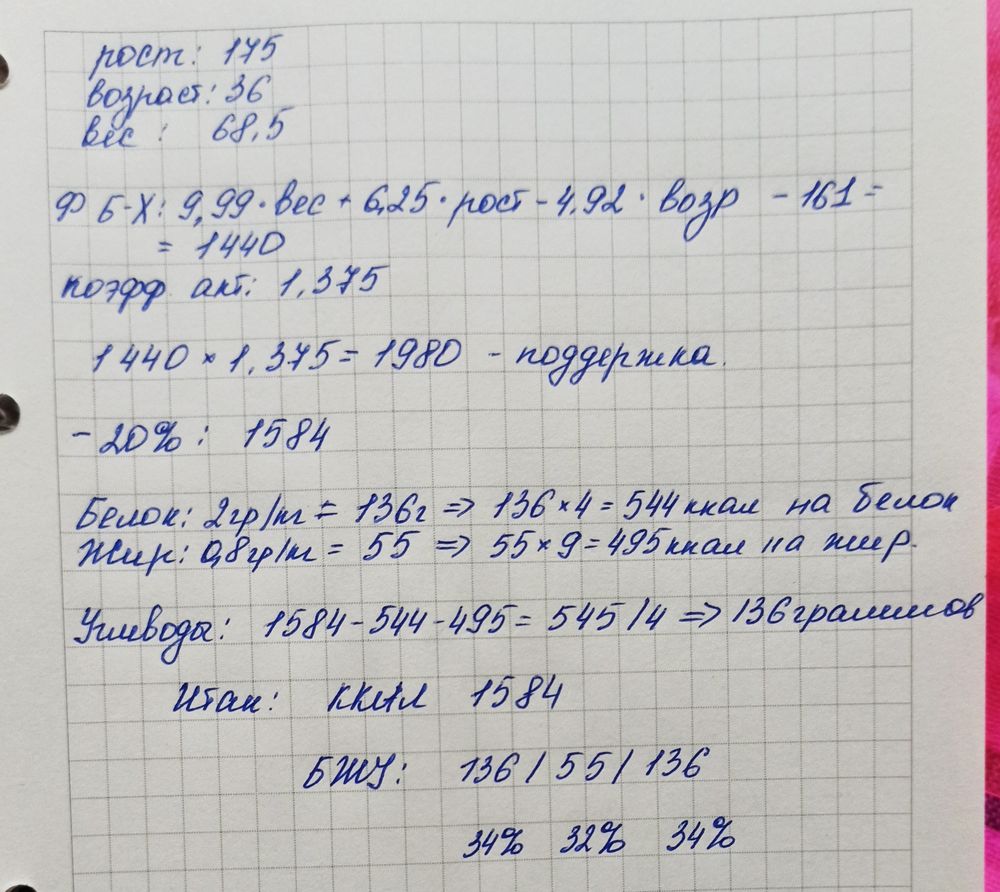 рост: 175
возраст: 36
вес: 68,5
Ф Б-Х: 9,99·вес + 6,25·рост - 4,92·возр - 161 =
= 1440
коэфф акт: 1,375
1440 × 1,375 = 1980 - поддержка.
- 20% : 1584
Белок: 2гр/кг = 136г => 136×4 = 544 ккал на белок
Жир: 0,8гр/кг = 55 => 55×9 = 495 ккал на жир.
Углеводы: 1584 - 544 - 495 = 545 /4 => 136 граммов
Итак: ККАЛ 1584
БЖУ: 136 / 55 / 136
34% 32% 34%